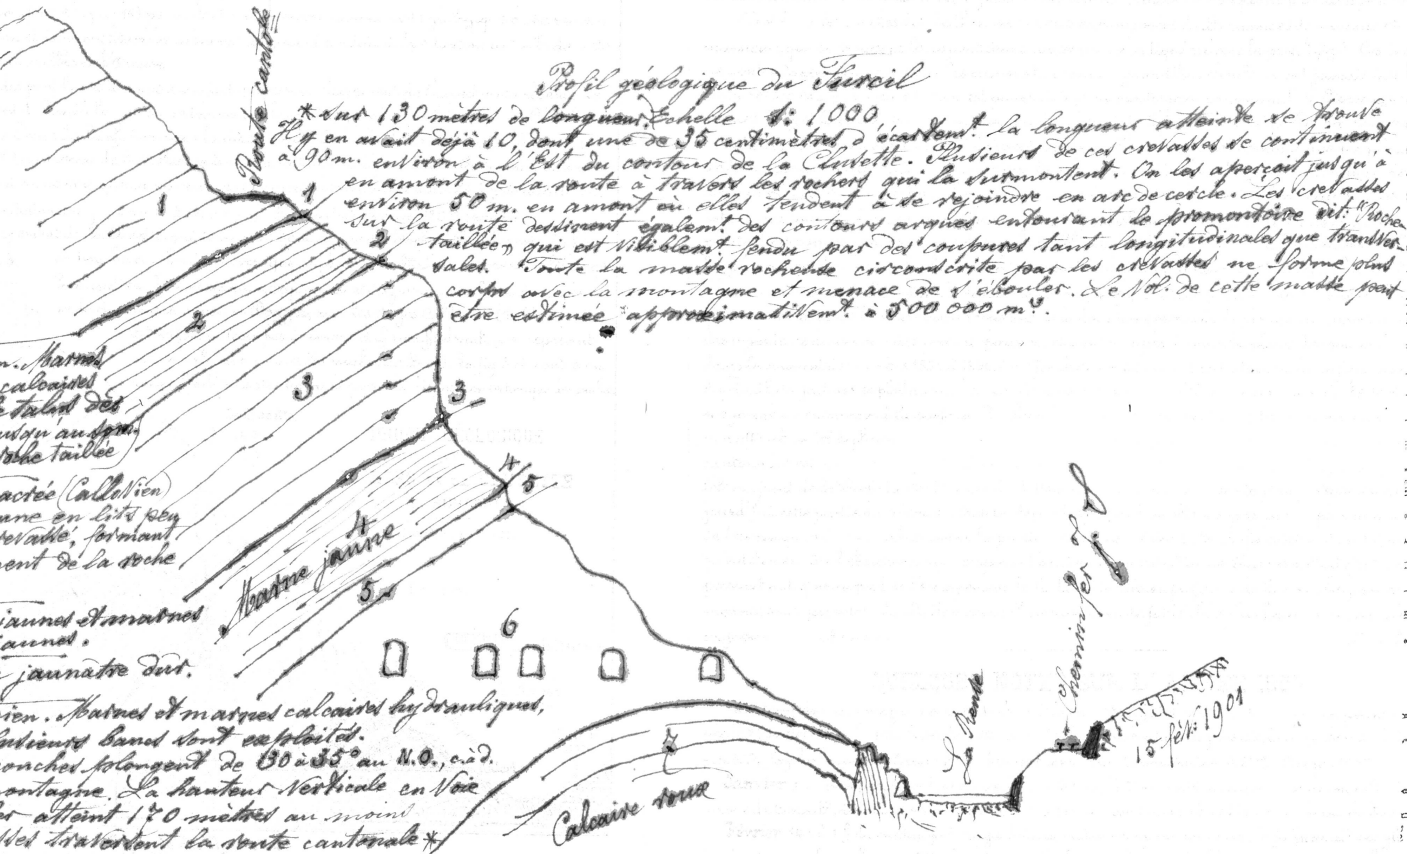 Profil géologique du Furcil
Route canton
* sur 130 mètres de longueur. Echelle 1:1000
Il y en avait déjà 10, dont une de 35 centimètres d'écartemt. la longueur atteinte se trouve
à 90 m. environ à l'Est du contour de la Clusette. Plusieurs de ces crevasses se continuent
en amont de la route à travers les rochers qui la surmontent. On les aperçoit jusqu'à
environ 50 m. en amont où elles tendent à se rejoindre en arc de cercle. Les crevasses
sur la route dessinent égalemt. des contours arqués entourant le promontoire dit: "Roche
taillée", qui est visiblemt. fendu par des coupures tant longitudinales que transver-
sales. Toute la masse rocheuse circonscrite par les crevasses ne forme plus
corps avec la montagne et menace de s'ébouler. Le Vol: de cette masse peut
être estimée approximativemt. à 500 000 m3.
1
1
2
2
3
3
4
5
4
Marne jaune
5
6
7
Calcaire roux
n. Marnes
calcaires
talus des
jusqu'au
roche taillée)
nacrée (Callovien)
en lits peu
crevassé, formant
ment de la roche
jaunes et marnes
jaunes.
jaunâtre dur.
ien. Marnes et marnes calcaires hydrauliques,
plusieurs bancs sont exploités.
couches plongent de 30 à 35° au N.O., c.à.d.
montagne. La hauteur verticale en Voie
er atteint 170 mètres au moins
sses traversent la route cantonale *
La Reuse
Chemin fer
15 fév: 1901